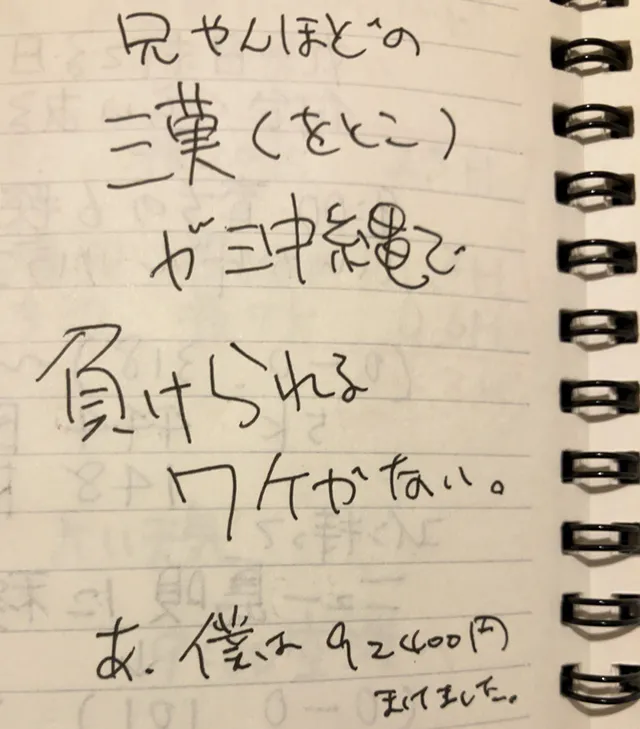 兄やんほどの
三漢(をとこ)
が三中縄で
負けられる
ワケがない。
あ、僕は92400円
まけてました。